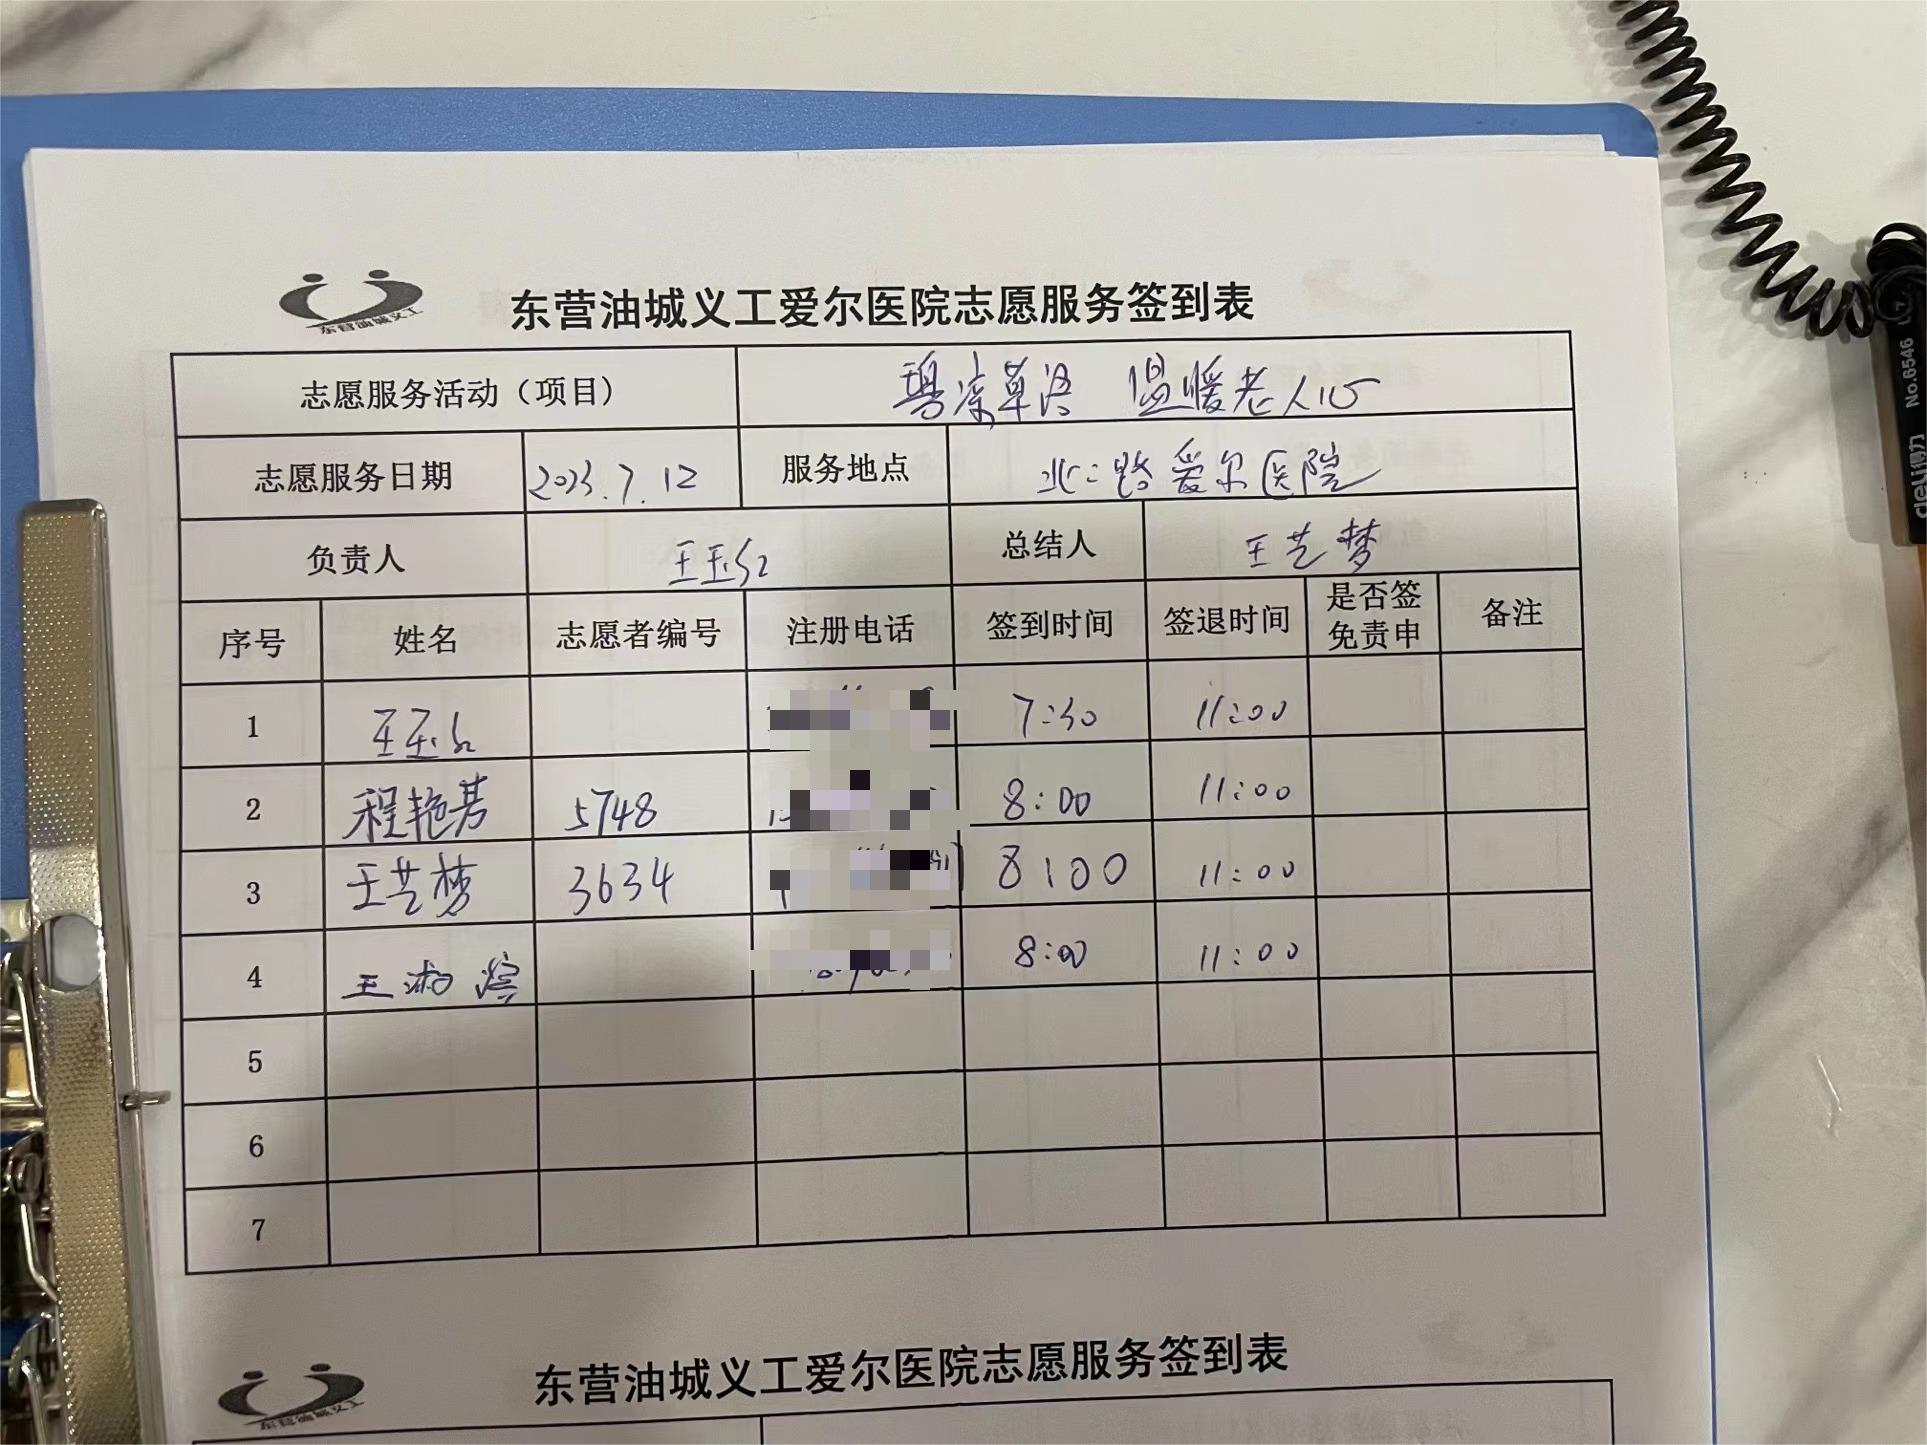 东营油城义工
东营油城义工爱尔医院志愿服务签到表
志愿服务活动（项目） 碧凉草汤 温暖老人心
志愿服务日期 2023.7.12 服务地点 北二路爱尔医院
负责人 王玉红 总结人 王芝梦
序号 姓名 志愿者编号 注册电话 签到时间 签退时间 是否签免责申 备注
1 王玉红 7:30 11:00
2 程艳芳 5748 8:00 11:00
3 王芝梦 3634 8:00 11:00
4 王 8:00 11:00
5
6
7
东营油城义工
东营油城义工爱尔医院志愿服务签到表
No.6546
deli得力